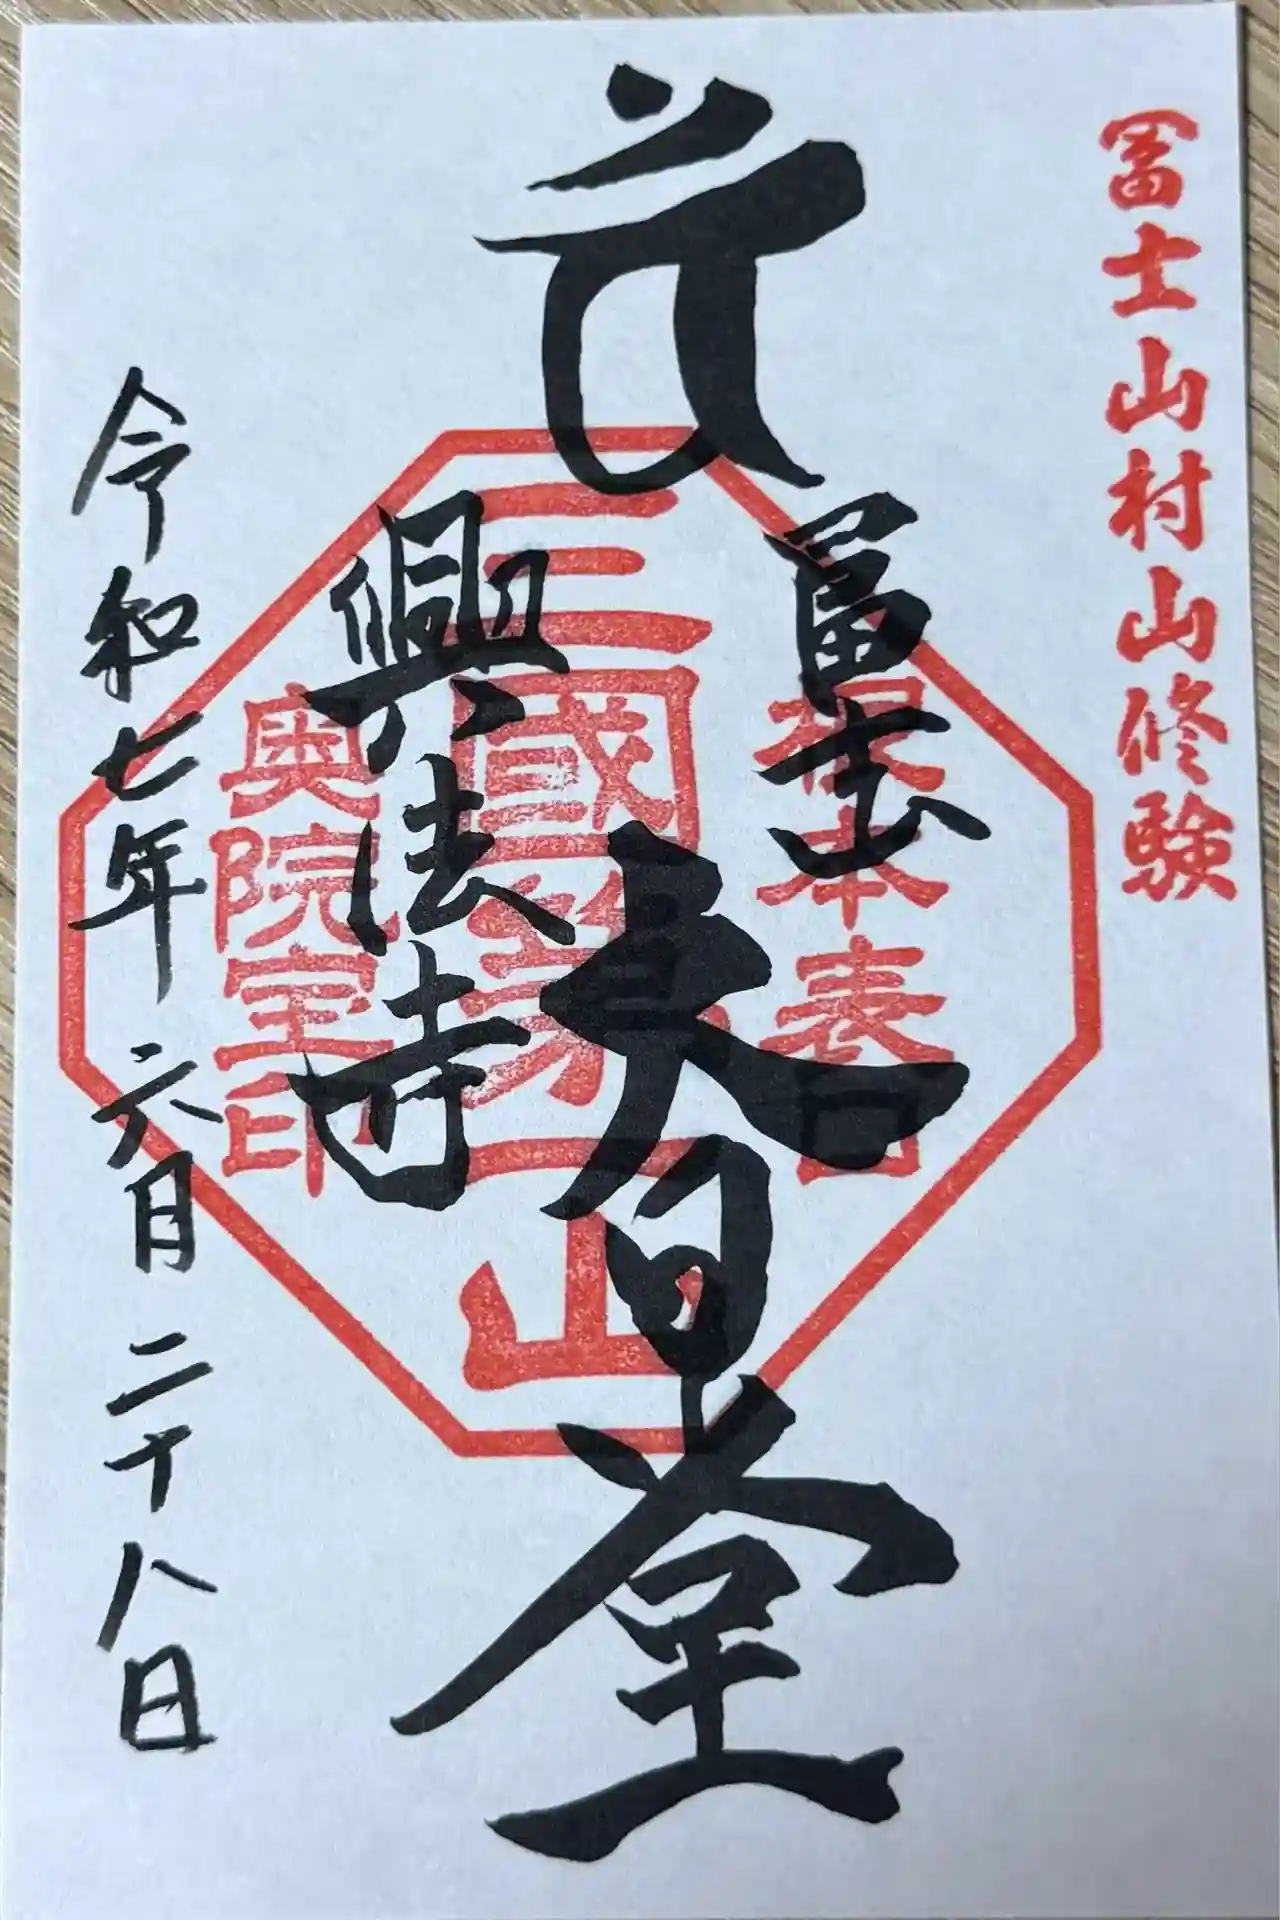 冨士山村山修験
冨士
大日堂
興法寺
令和七年六月二十八日
根本表口
三國第一山
奥院宝印